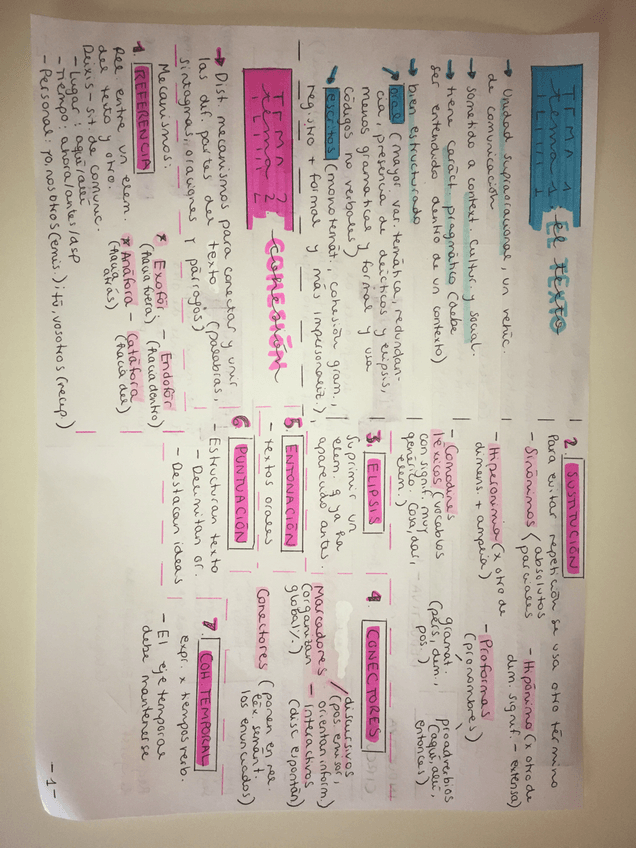 TEMA 1
tema 1: EL TEXTO
el texto
→ Unidad supraoracional, un vehíc.
de comunicación
→ sometido a context cultur. y social.
→ tiene caráct pragmático (debe
ser entendido dentro de un contexto)
→ bien estructurado
→ oral (mayor var. temática, redundan-
cia, presencia de deícticos y elipsis,
menos gramatical y formal y usa
códigos no verbales)
→ escritos (monotemát., cohesión gram.,
registro + formal y más impersonaliz.)
TEMA 2
tema 2 COHESIÓN
cohesión
→ Dist. mecanismos para conectar y unir
las dif. partes del texto (palabras,
sintagmas, oraciones y párrafos)
Mecanismos:
1. REFERENCIA
Rel entre un elem.
del texto y otro.
* Exofór. - Endofór
(hacia fuera) (hacia dentro)
* Anáfora - Catáfora
(hacia atrás) (hacia del)
Deixis - sit. de comunic.
- Lugar: aquí/allí
- Tiempo: ahora/antes/dsp
- Personal: yo, nosotros (emis.); tú, vosotros (recep)
2. SUSTITUCIÓN
Para evitar repetición se usa otro término
- Sinónimos (absolutos
parciales
- Hiperónimo (x otro de
dimens. + amplia)
- Hipónimo (x otro de
dim. signif. - extensa)
- Comodines
léxicos (vocablos
con signif. muy
genérico. Cosa, dar,
elem.)
- Proformas
(pronombres)
gramat.
(pers, dem.,
pos.)
proadverbios
(aquí, allí,
entonces)
3. ELIPSIS
Suprimir un
elem. q ya ha
aparecido antes.
4 CONECTORES
Marcadores
(organizan
global/.)
discursivos
(pos. emisor,
orientan inform)
- interactivos
(disc espontán)
Conectores (ponen en rel.
léx semant.
los enunciados)
5. ENTONACIÓN
- textos orales
6 PUNTUACIÓN
- Estructuran texto
- Delimitan or.
- Destacan ideas
7. COH TEMPORAL
expr. x tiempos verb.
- El eje temporal
debe mantenerse
-1-